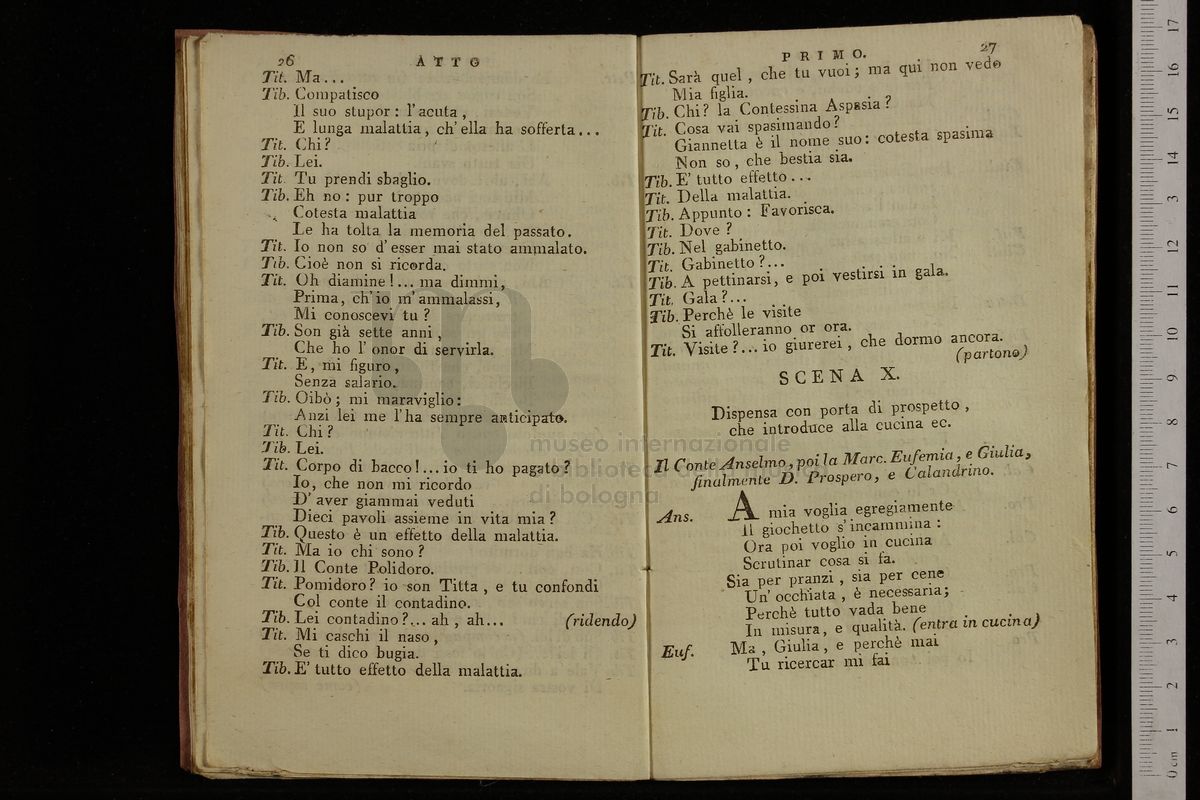 26
ATTO
Tit. Ma...
Tib. Compatisco
Il suo stupor: l'acuta,
E lunga malattia, ch'ella ha sofferta...
Tit. Chi?
Tib. Lei.
Tit. Tu prendi sbaglio.
Tib. Eh no: pur troppo
Cotesta malattia
Le ha tolta la memoria del passato.
Tit. Io non so d'esser mai stato ammalato.
Tib. Cioè non si ricorda.
Tit. Oh diamine!... ma dimmi,
Prima, ch'io m'ammalassi,
Mi conoscevi tu?
Tib. Son già sette anni,
Che ho l'onor di servirla.
Tit. E, mi figuro,
Senza salario.
Tib. Oibò; mi maraviglio:
Anzi lei me l'ha sempre anticipato.
Tit. Chi?
Tib. Lei.
Tit. Corpo di bacco!... io ti ho pagato?
Io, che non mi ricordo
D'aver giammai veduti
Dieci pavoli assieme in vita mia?
Tib. Questo è un effetto della malattia.
Tit. Ma io chi sono?
Tib. Il Conte Polidoro.
Tit. Pomidoro? io son Titta, e tu confondi
Col conte il contadino.
Tib. Lei contadino?... ah, ah... (ridendo)
Tit. Mi caschi il naso,
Se ti dico bugia.
Tib. E' tutto effetto della malattia.
PRIMO.
27
Tit. Sarà quel, che tu vuoi; ma qui non vedo
Mia figlia.
Tib. Chi? la Contessina Aspasia?
Tit. Cosa vai spasimando?
Giannetta è il nome suo: cotesta spasima
Non so, che bestia sia.
Tib. E' tutto effetto...
Tit. Della malattia.
Tib. Appunto: Favorisca.
Tit. Dove?
Tib. Nel gabinetto.
Tit. Gabinetto?...
Tib. A pettinarsi, e poi vestirsi in gala.
Tit. Gala?...
Tib. Perchè le visite
Si affolleranno or ora.
Tit. Visite?... io giurerei, che dormo ancora.
(partono)
SCENA X.
Dispensa con porta di prospetto,
che introduce alla cucina ec.
Il Conte Anselmo, poi la Marc. Eufemia, e Giulia,
finalmente D. Prospero, e Calandrino.
Ans. A mia voglia egregiamente
Il giochetto s'incammina:
Ora poi voglio in cucina
Scrutinar cosa si fa.
Sia per pranzi, sia per cene
Un'occhiata, è necessaria;
Perchè tutto vada bene
In misura, e qualità. (entra in cucina)
Euf. Ma, Giulia, e perchè mai
Tu ricercar mi fai
museo internazionale
e biblioteca della musica
di bologna
0 cm 1 2 3 4 5 6 7 8 9 10 11 12 13 14 15 16 17